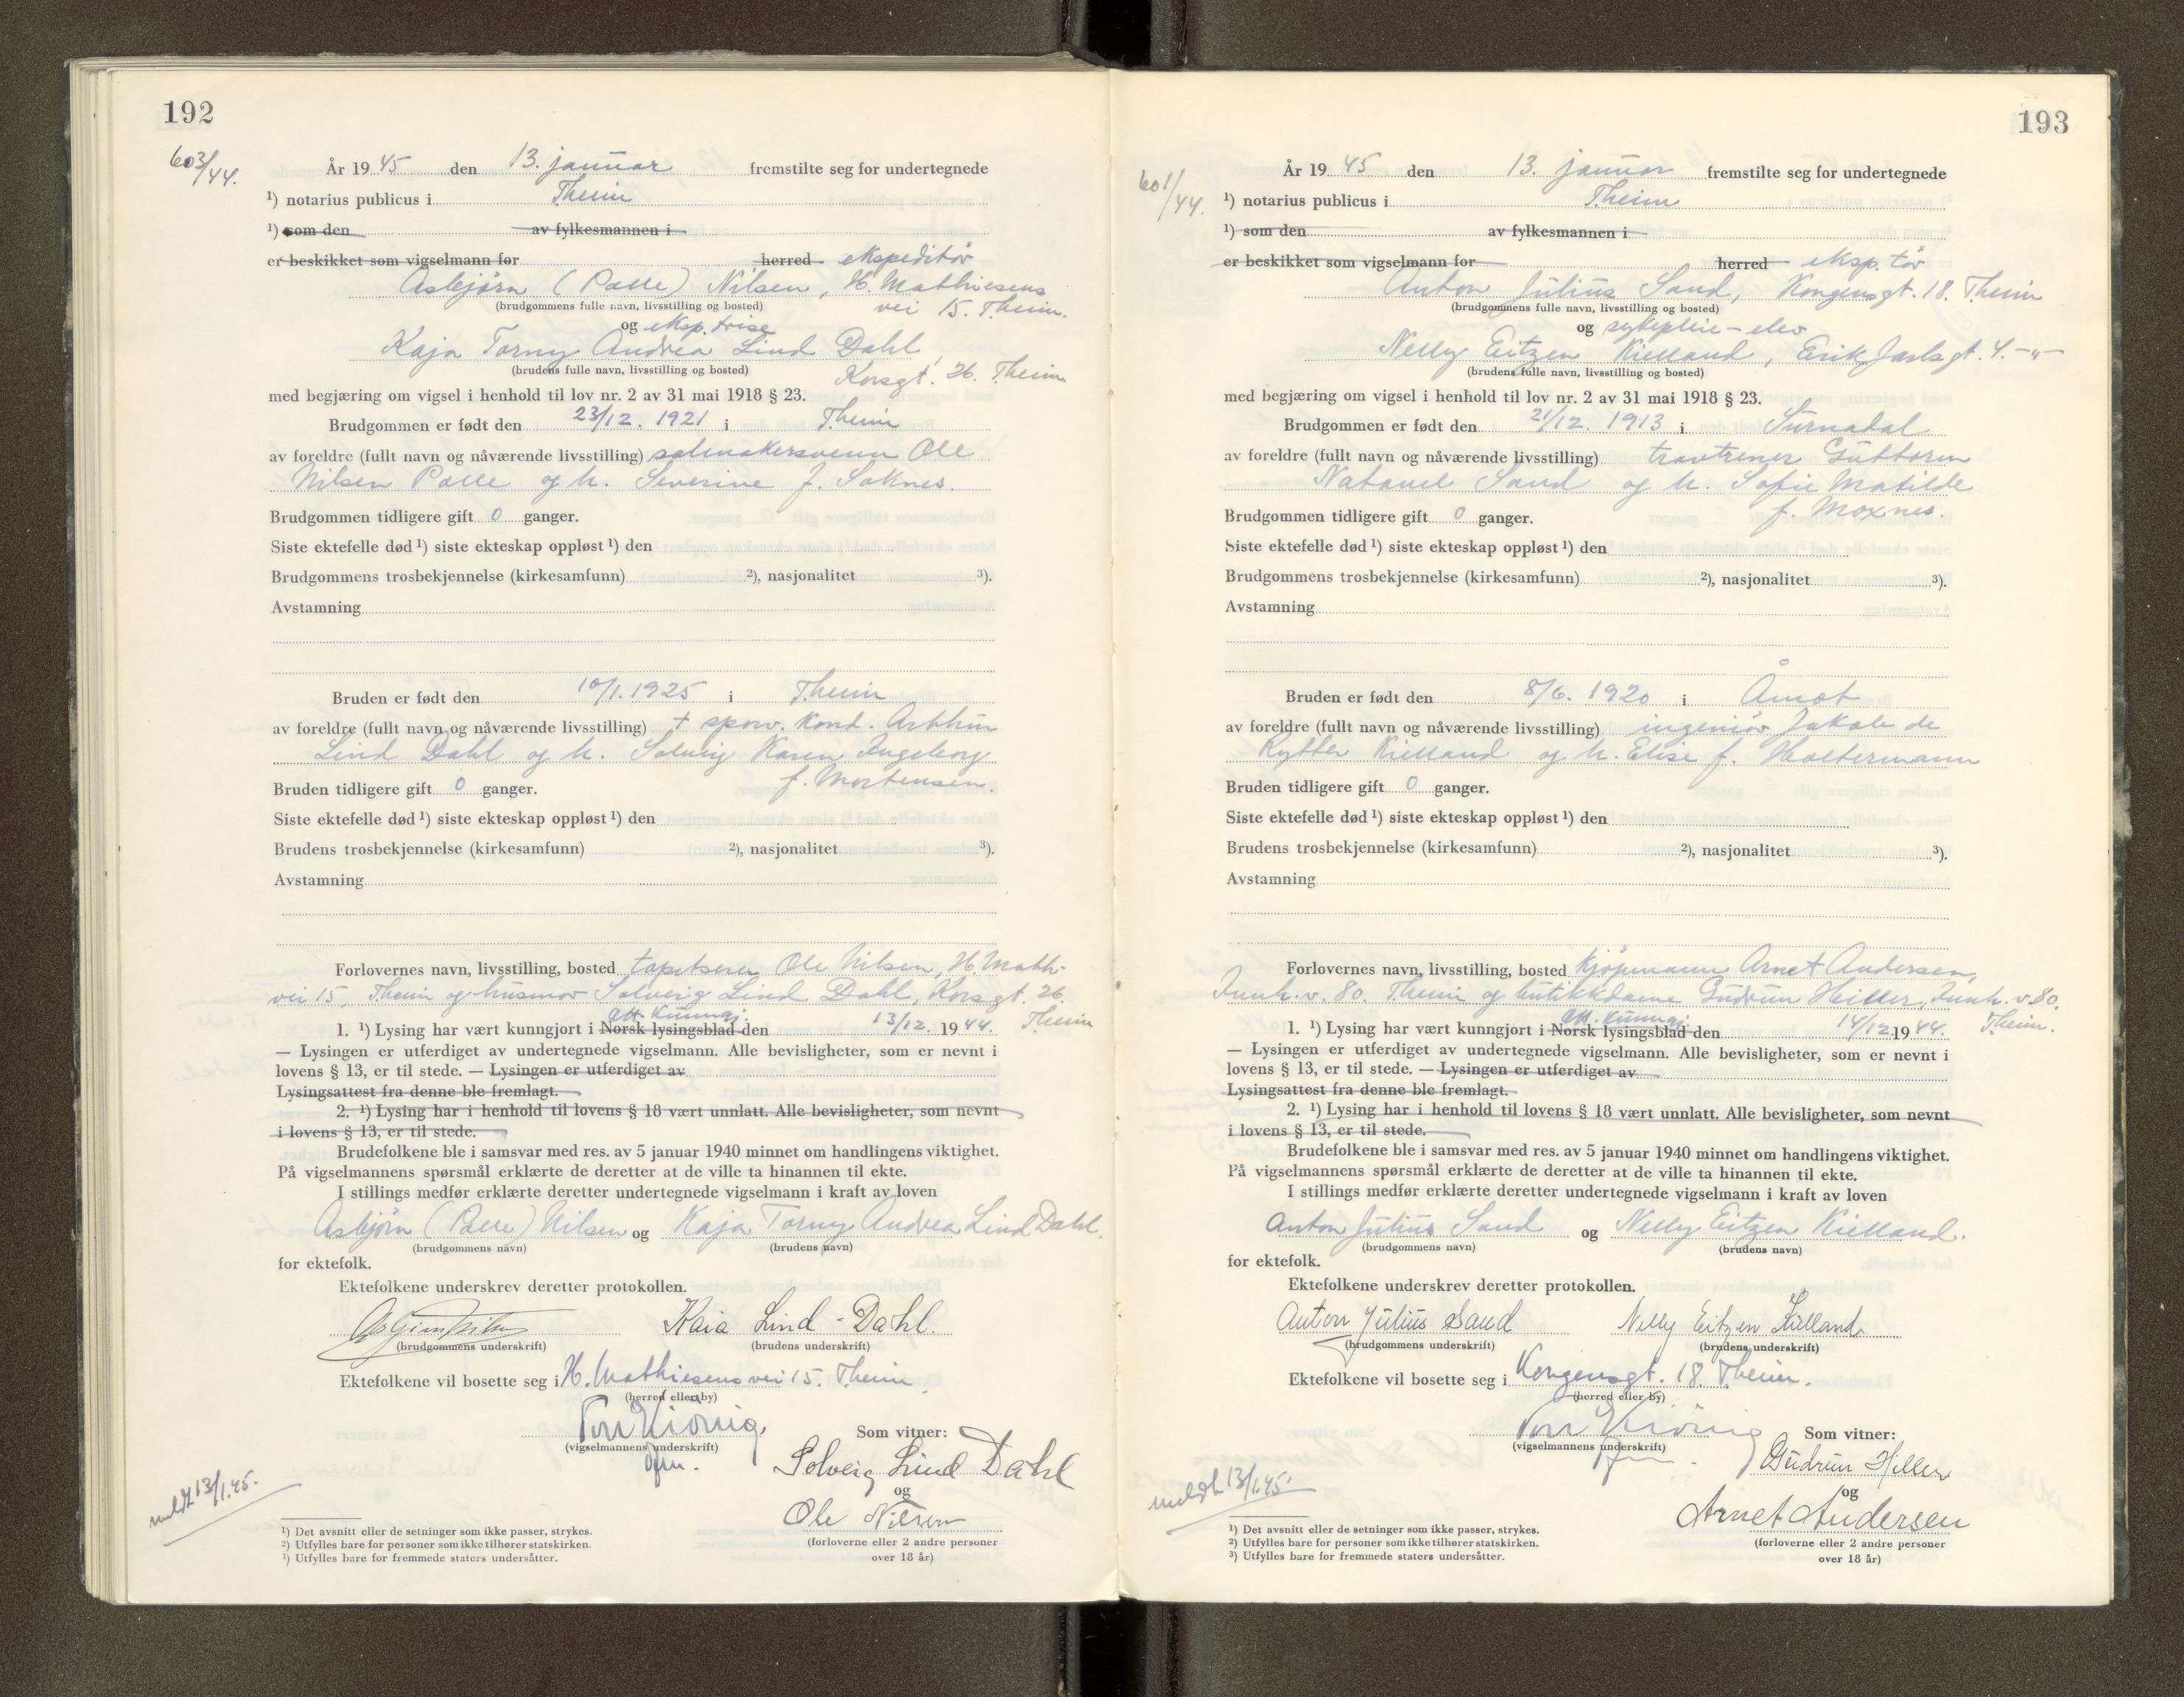 192
603/44.
År 1945 den 13. januar fremstilte seg for undertegnede
1) notarius publicus i T.heim
1) som den av fylkesmannen i
er beskikket som vigselmann for herred ekspeditör
Asbjørn (Palle) Nilsen, H. Mathiesens
(brudgommens fulle navn, livsstilling og bosted) vei 15. T.heim.
og eksp.trise
Kaja Torny Andrea Lind Dahl,
(brudens fulle navn, livsstilling og bosted) Korsgt. 26. T.heim
med begjæring om vigsel i henhold til lov nr. 2 av 31 mai 1918 § 23.
Brudgommen er født den 23/12. 1921 i T.heim
av foreldre (fullt navn og nåværende livsstilling) salmakersvenn Ole
Nilsen Palle og h. Severine f. Saknes.
Brudgommen tidligere gift 0 ganger.
Siste ektefelle død 1) siste ekteskap oppløst 1) den
Brudgommens trosbekjennelse (kirkesamfunn) 2), nasjonalitet 3).
Avstamning
Bruden er født den 10/1. 1925 i T.heim
av foreldre (fullt navn og nåværende livsstilling) + sporv. kond. Arthur
Lind Dahl og h. Solveig Karen Ingeborg
f. Mortensen.
Bruden tidligere gift 0 ganger.
Siste ektefelle død 1) siste ekteskap oppløst 1) den
Brudens trosbekjennelse (kirkesamfunn) 2), nasjonalitet 3).
Avstamning
Forlovernes navn, livsstilling, bosted tapetserer Ole Nilsen, H. Math-
vei 15, T.heim og husmor Solveig Lind Dahl, Korsgt. 26.
T.heim
off. kunngj.
1. 1) Lysing har vært kunngjort i Norsk lysingsblad den 13/12. 1944.
— Lysingen er utferdiget av undertegnede vigselmann. Alle bevisligheter, som er nevnt i
lovens § 13, er til stede. — Lysingen er utferdiget av
Lysingsattest fra denne ble fremlagt.
2. 1) Lysing har i henhold til lovens § 18 vært unnlatt. Alle bevisligheter, som nevnt
i lovens § 13, er til stede.
Brudefolkene ble i samsvar med res. av 5 januar 1940 minnet om handlingens viktighet.
På vigselmannens spørsmål erklærte de deretter at de ville ta hinannen til ekte.
I stillings medfør erklærte deretter undertegnede vigselmann i kraft av loven
Asbjørn (Palle) Nilsen og Kaja Torny Andrea Lind Dahl.
(brudgommens navn) (brudens navn)
for ektefolk.
Ektefolkene underskrev deretter protokollen.
Kaia Lind-Dahl.
(brudgommens underskrift) (brudens underskrift)
Ektefolkene vil bosette seg i H. Mathiesens vei 15. T.heim.
(herred eller by)
(vigselmannens underskrift)
Som vitner:
Solveig Lind Dahl
og
Ole Nilsen
(forloverne eller 2 andre personer
over 18 år)
meldt 13/1.45.
1) Det avsnitt eller de setninger som ikke passer, strykes.
2) Utfylles bare for personer som ikke tilhører statskirken.
3) Utfylles bare for fremmede staters undersåtter.
193
601/44.
År 1945 den 13. januar fremstilte seg for undertegnede
1) notarius publicus i T.heim
1) som den av fylkesmannen i
er beskikket som vigselmann for herred eksp. tör
Anton Julius Sand, Kongensgt. 18. T.heim
(brudgommens fulle navn, livsstilling og bosted)
og sykepleie-elev
Nelly Eitzen Kielland, Erik Jarlsgt. 4. -"-
(brudens fulle navn, livsstilling og bosted)
med begjæring om vigsel i henhold til lov nr. 2 av 31 mai 1918 § 23.
Brudgommen er født den 21/12. 1913 i Surnadal
av foreldre (fullt navn og nåværende livsstilling) travtrener Guttorm
Natanel Sand og h. Sofie Matilde
f. Moxnes.
Brudgommen tidligere gift 0 ganger.
Siste ektefelle død 1) siste ekteskap oppløst 1) den
Brudgommens trosbekjennelse (kirkesamfunn) 2), nasjonalitet 3).
Avstamning
Bruden er født den 8/6. 1920 i Åmot
av foreldre (fullt navn og nåværende livsstilling) ingeniör Jakob de
Rytter Kielland og h. Elise f. Holtermann
Bruden tidligere gift 0 ganger.
Siste ektefelle død 1) siste ekteskap oppløst 1) den
Brudens trosbekjennelse (kirkesamfunn) 2), nasjonalitet 3).
Avstamning
Forlovernes navn, livsstilling, bosted kjöpmann Arnet Andersen,
Innh. v. 80. T.heim og butikkdame Gudrun Hiller, Innh. v 80.
T.heim.
off. kunngj.
1. 1) Lysing har vært kunngjort i Norsk lysingsblad den 14/12. 1944.
— Lysingen er utferdiget av undertegnede vigselmann. Alle bevisligheter, som er nevnt i
lovens § 13, er til stede. — Lysingen er utferdiget av
Lysingsattest fra denne ble fremlagt.
2. 1) Lysing har i henhold til lovens § 18 vært unnlatt. Alle bevisligheter, som nevnt
i lovens § 13, er til stede.
Brudefolkene ble i samsvar med res. av 5 januar 1940 minnet om handlingens viktighet.
På vigselmannens spørsmål erklærte de deretter at de ville ta hinannen til ekte.
I stillings medfør erklærte deretter undertegnede vigselmann i kraft av loven
Anton Julius Sand og Nelly Eitzen Kielland.
(brudgommens navn) (brudens navn)
for ektefolk.
Ektefolkene underskrev deretter protokollen.
Anton Julius Sand Nelly Eitzen Kielland
(brudgommens underskrift) (brudens underskrift)
Ektefolkene vil bosette seg i Kongensgt. 18. T.heim.
(herred eller by)
(vigselmannens underskrift)
Som vitner:
Gudrun Hiller
og
Arnet Andersen
(forloverne eller 2 andre personer
over 18 år)
meldt 13/1.45.
1) Det avsnitt eller de setninger som ikke passer, strykes.
2) Utfylles bare for personer som ikke tilhører statskirken.
3) Utfylles bare for fremmede staters undersåtter.